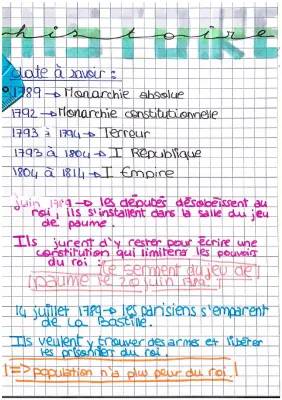 histoire
date à savoir :
1789 → Monarchie absolue
1792 → Monarchie constitutionnelle
1793 à 1794 → Terreur
1793 à 1804 → I République
1804 à 1814 → I Empire
juin 1789 → les députés désobéissent au
roi, ils s'installent dans la salle du jeu
de paume.
Ils jurent d'y rester pour écrire une
constitution qui limitera les pouvoirs
du roi : (le serment du jeu de
paume le 20 juin 1789)
14 juillet 1789 → les parisiens s'emparent
de La Bastille.
Ils veulent y trouver des armes et libérer
les prisonnier du roi.
! => population n'a plus peur du roi. !